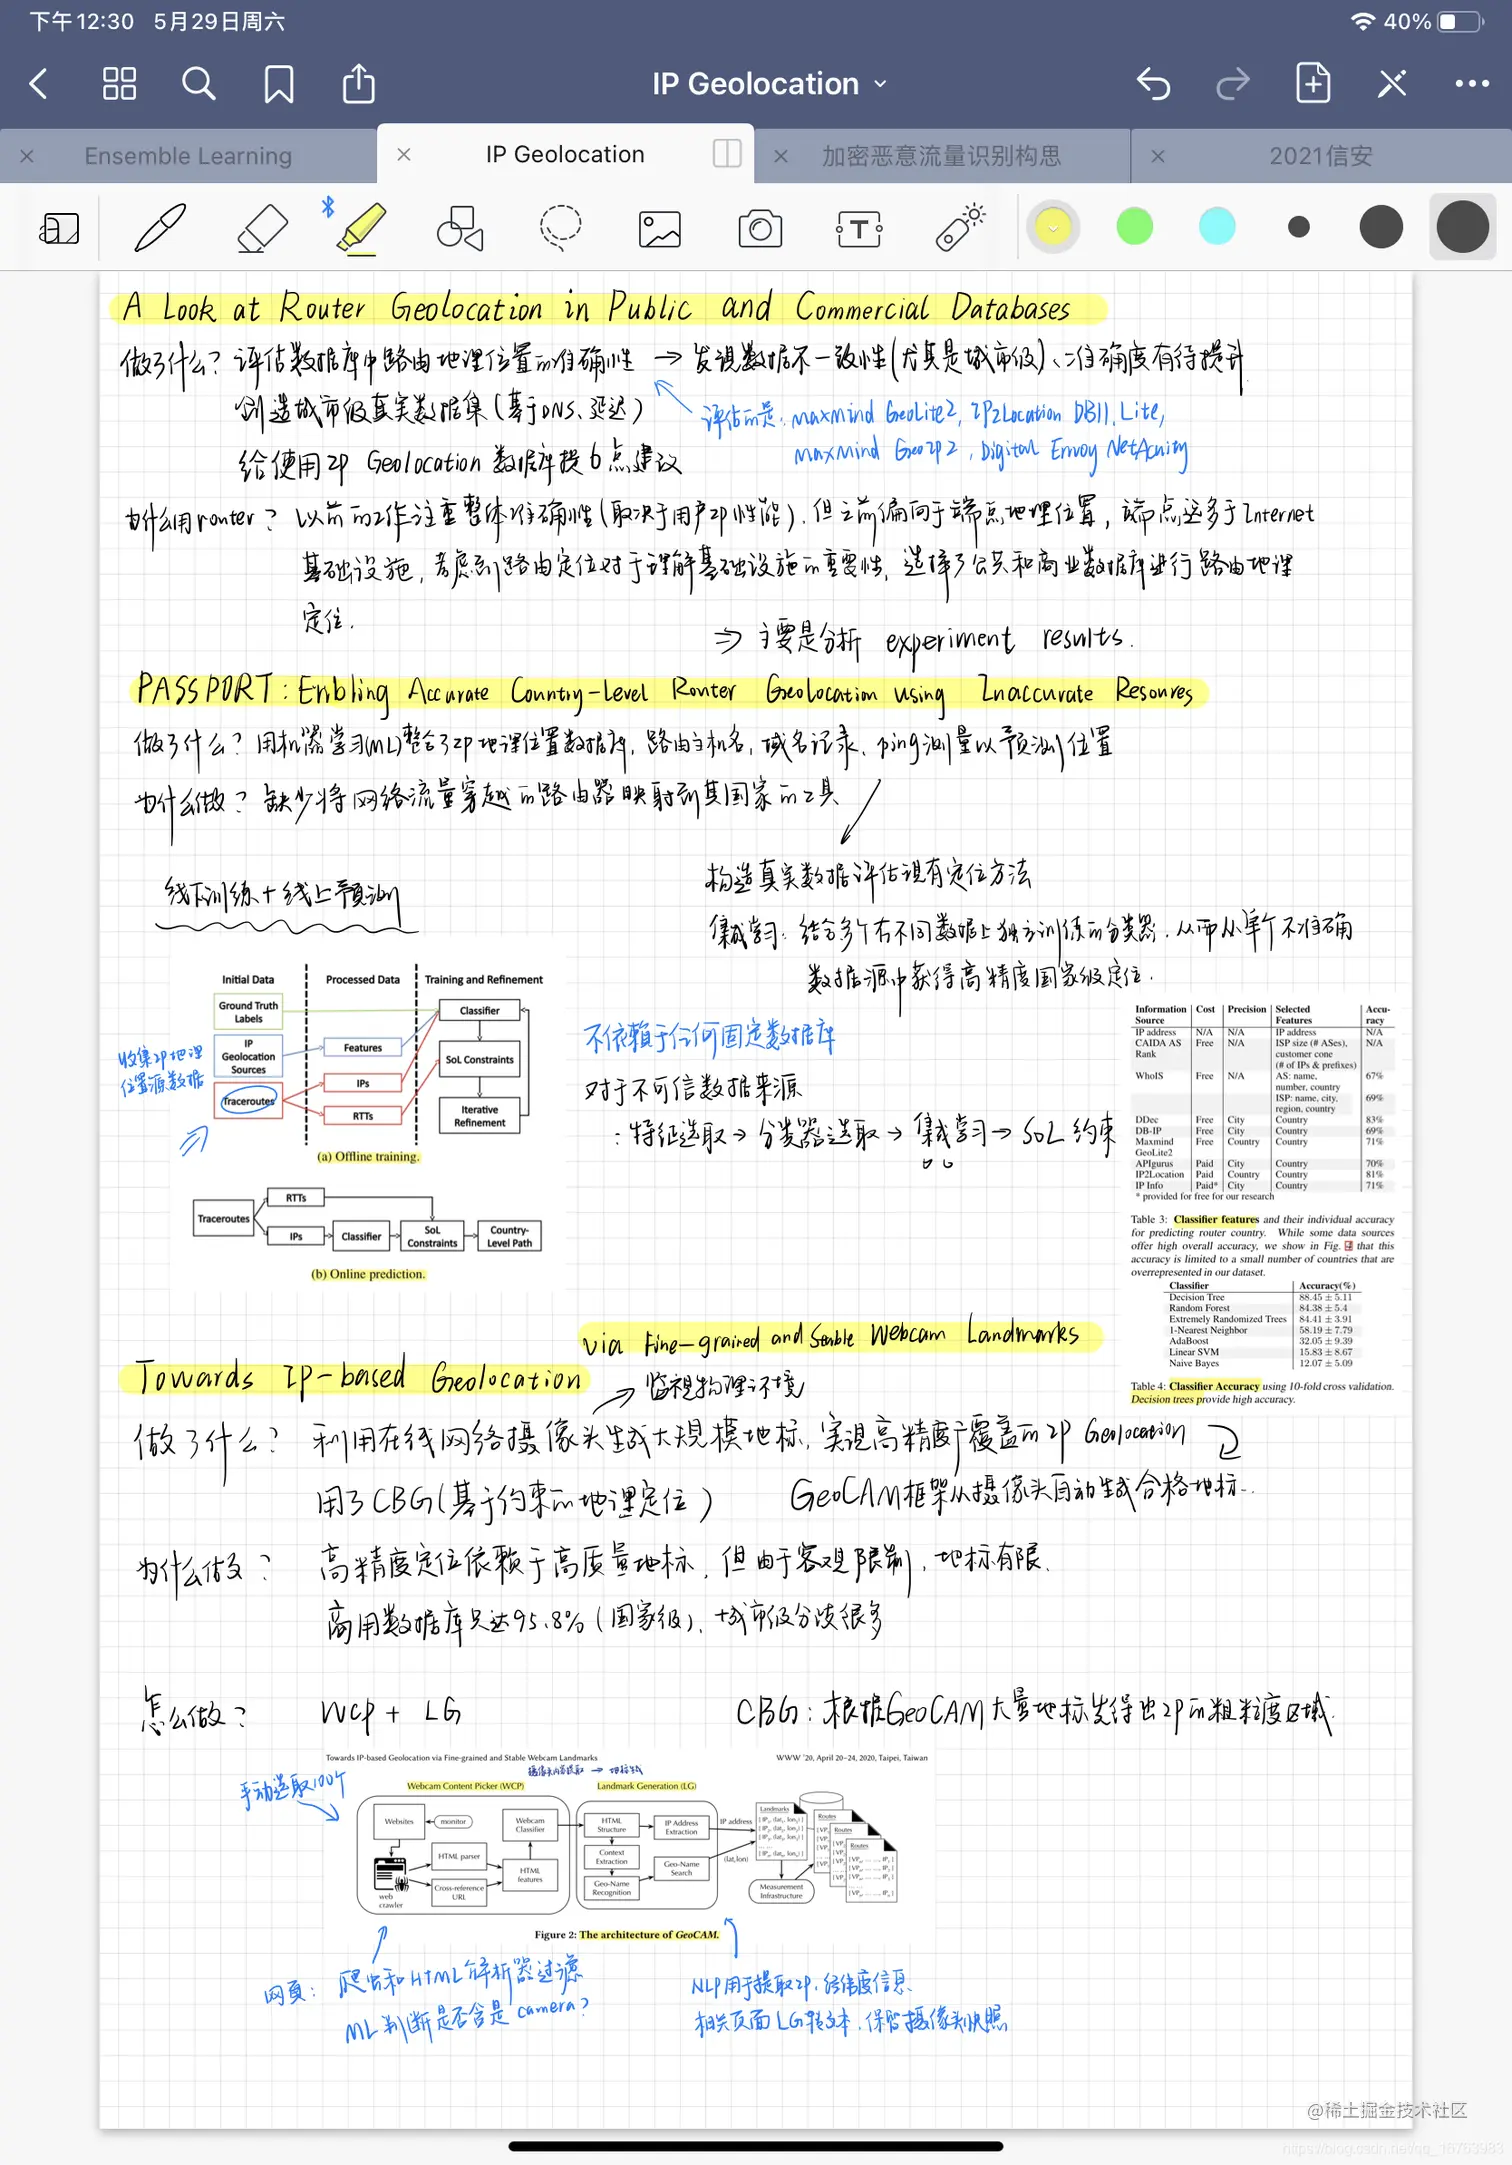 下午12:30 5月29日周六
40%
IP Geolocation
Ensemble Learning
IP Geolocation
加密恶意流量识别构思
2021信安
A Look at Router Geolocation in Public and Commercial Databases
做了什么? 评估数据库中路由地理位置的准确性 → 发现数据不一致性(尤其是城市级)、准确度有待提升
创造城市级真实数据集(基于DNS、延迟)
评估的是: maxmind GeoLite2, IP2Location DB11.Lite,
maxmind GeoIP2, Digital Envoy NetAcuity
给使用IP Geolocation 数据库提6点建议
为什么用router? 以前的工作注重整体准确性(取决于用户IP性能), 但之前偏向于端点地理位置, 端点远多于Internet
基础设施, 考虑到路由定位对于理解基础设施的重要性, 选择了公共和商业数据库进行路由地理
定位.
⇒ 主要是分析 experiment results.
PASSPORT: Enbling Accurate Country-Level Router Geolocation using Inaccurate Resoures
做了什么? 用机器学习(ML)整合了IP地理位置数据库, 路由主机名, 域名记录、ping测量以预测位置
为什么做? 缺少将网络流量穿越的路由器映射到其国家的工具
构造真实数据评估现有定位方法
线下训练+线上预测
集成学习: 结合多个在不同数据上独立训练的分类器, 从而从单个不准确
数据源中获得高精度国家级定位.
Initial Data
Processed Data
Training and Refinement
Ground Truth Labels
Classifier
IP Geolocation Sources
Features
SoL Constraints
收集IP地理
位置源数据
IPs
Traceroutes
RTTs
Iterative Refinement
(a) Offline training.
不依赖于任何固定数据库
对于不可信数据来源
: 特征选取→分类器选取→集成学习→SoL约束
RTTs
Traceroutes
IPs
Classifier
SoL Constraints
Country-Level Path
(b) Online prediction.
Information Source Cost Precision Selected Features Accu-racy
IP address N/A N/A IP address N/A
CAIDA AS Rank Free N/A ISP size (# ASes), customer cone (# of IPs & prefixes) N/A
WhoIS Free N/A AS: name, number, country 67%
ISP: name, city, region, country 69%
DDec Free City Country 83%
DB-IP Free City Country 69%
Maxmind GeoLite2 Free Country Country 71%
APIgurus Paid City Country 70%
IP2Location Paid Country Country 81%
IP Info Paid* City Country 71%
* provided for free for our research
Table 3: Classifier features and their individual accuracy
for predicting router country. While some data sources
offer high overall accuracy, we show in Fig. 4 that this
accuracy is limited to a small number of countries that are
overrepresented in our dataset.
Classifier Accuracy(%)
Decision Tree 88.45 ± 5.11
Random Forest 84.38 ± 5.4
Extremely Randomized Trees 84.41 ± 3.91
1-Nearest Neighbor 58.19 ± 7.79
AdaBoost 32.05 ± 9.39
Linear SVM 15.83 ± 8.67
Naive Bayes 12.07 ± 5.09
Table 4: Classifier Accuracy using 10-fold cross validation.
Decision trees provide high accuracy.
via Fine-grained and Stable Webcam Landmarks
Towards IP-based Geolocation
监视物理环境
做了什么? 利用在线网络摄像头生成大规模地标, 实现高精度广覆盖的IP Geolocation
用了CBG(基于约束的地理定位)
GeoCAM框架从摄像头自动生成合格地标.
为什么做? 高精度定位依赖于高质量地标, 但由于客观限制, 地标有限.
商用数据库只达95.8%(国家级), 城市级分歧很多
怎么做? WCP + LG
CBG: 根据GeoCAM大量地标先得出IP的粗粒度区域.
Towards IP-based Geolocation via Fine-grained and Stable Webcam Landmarks
WWW '20, April 20–24, 2020, Taipei, Taiwan
手动选取100个
摄像头内容提取 → 地标生成
Webcam Content Picker (WCP)
Landmark Generation (LG)
Websites
monitor
Webcam Classifier
HTML parser
Cross-reference URL
HTML features
web crawler
HTML Structure
IP Address Extraction
Context Extraction
Geo-Name Search
Geo-Name Recognition
IP address
(lat,lon)
Landmarks
Routes
Routes
Routes
Measurement Infrastructure
Figure 2: The architecture of GeoCAM.
网页: 爬虫和HTML解析器过滤
ML判断是否含是camera?
NLP用于提取IP, 经纬度信息.
相关页面LG转文本, 保留摄像头快照
@稀土掘金技术社区